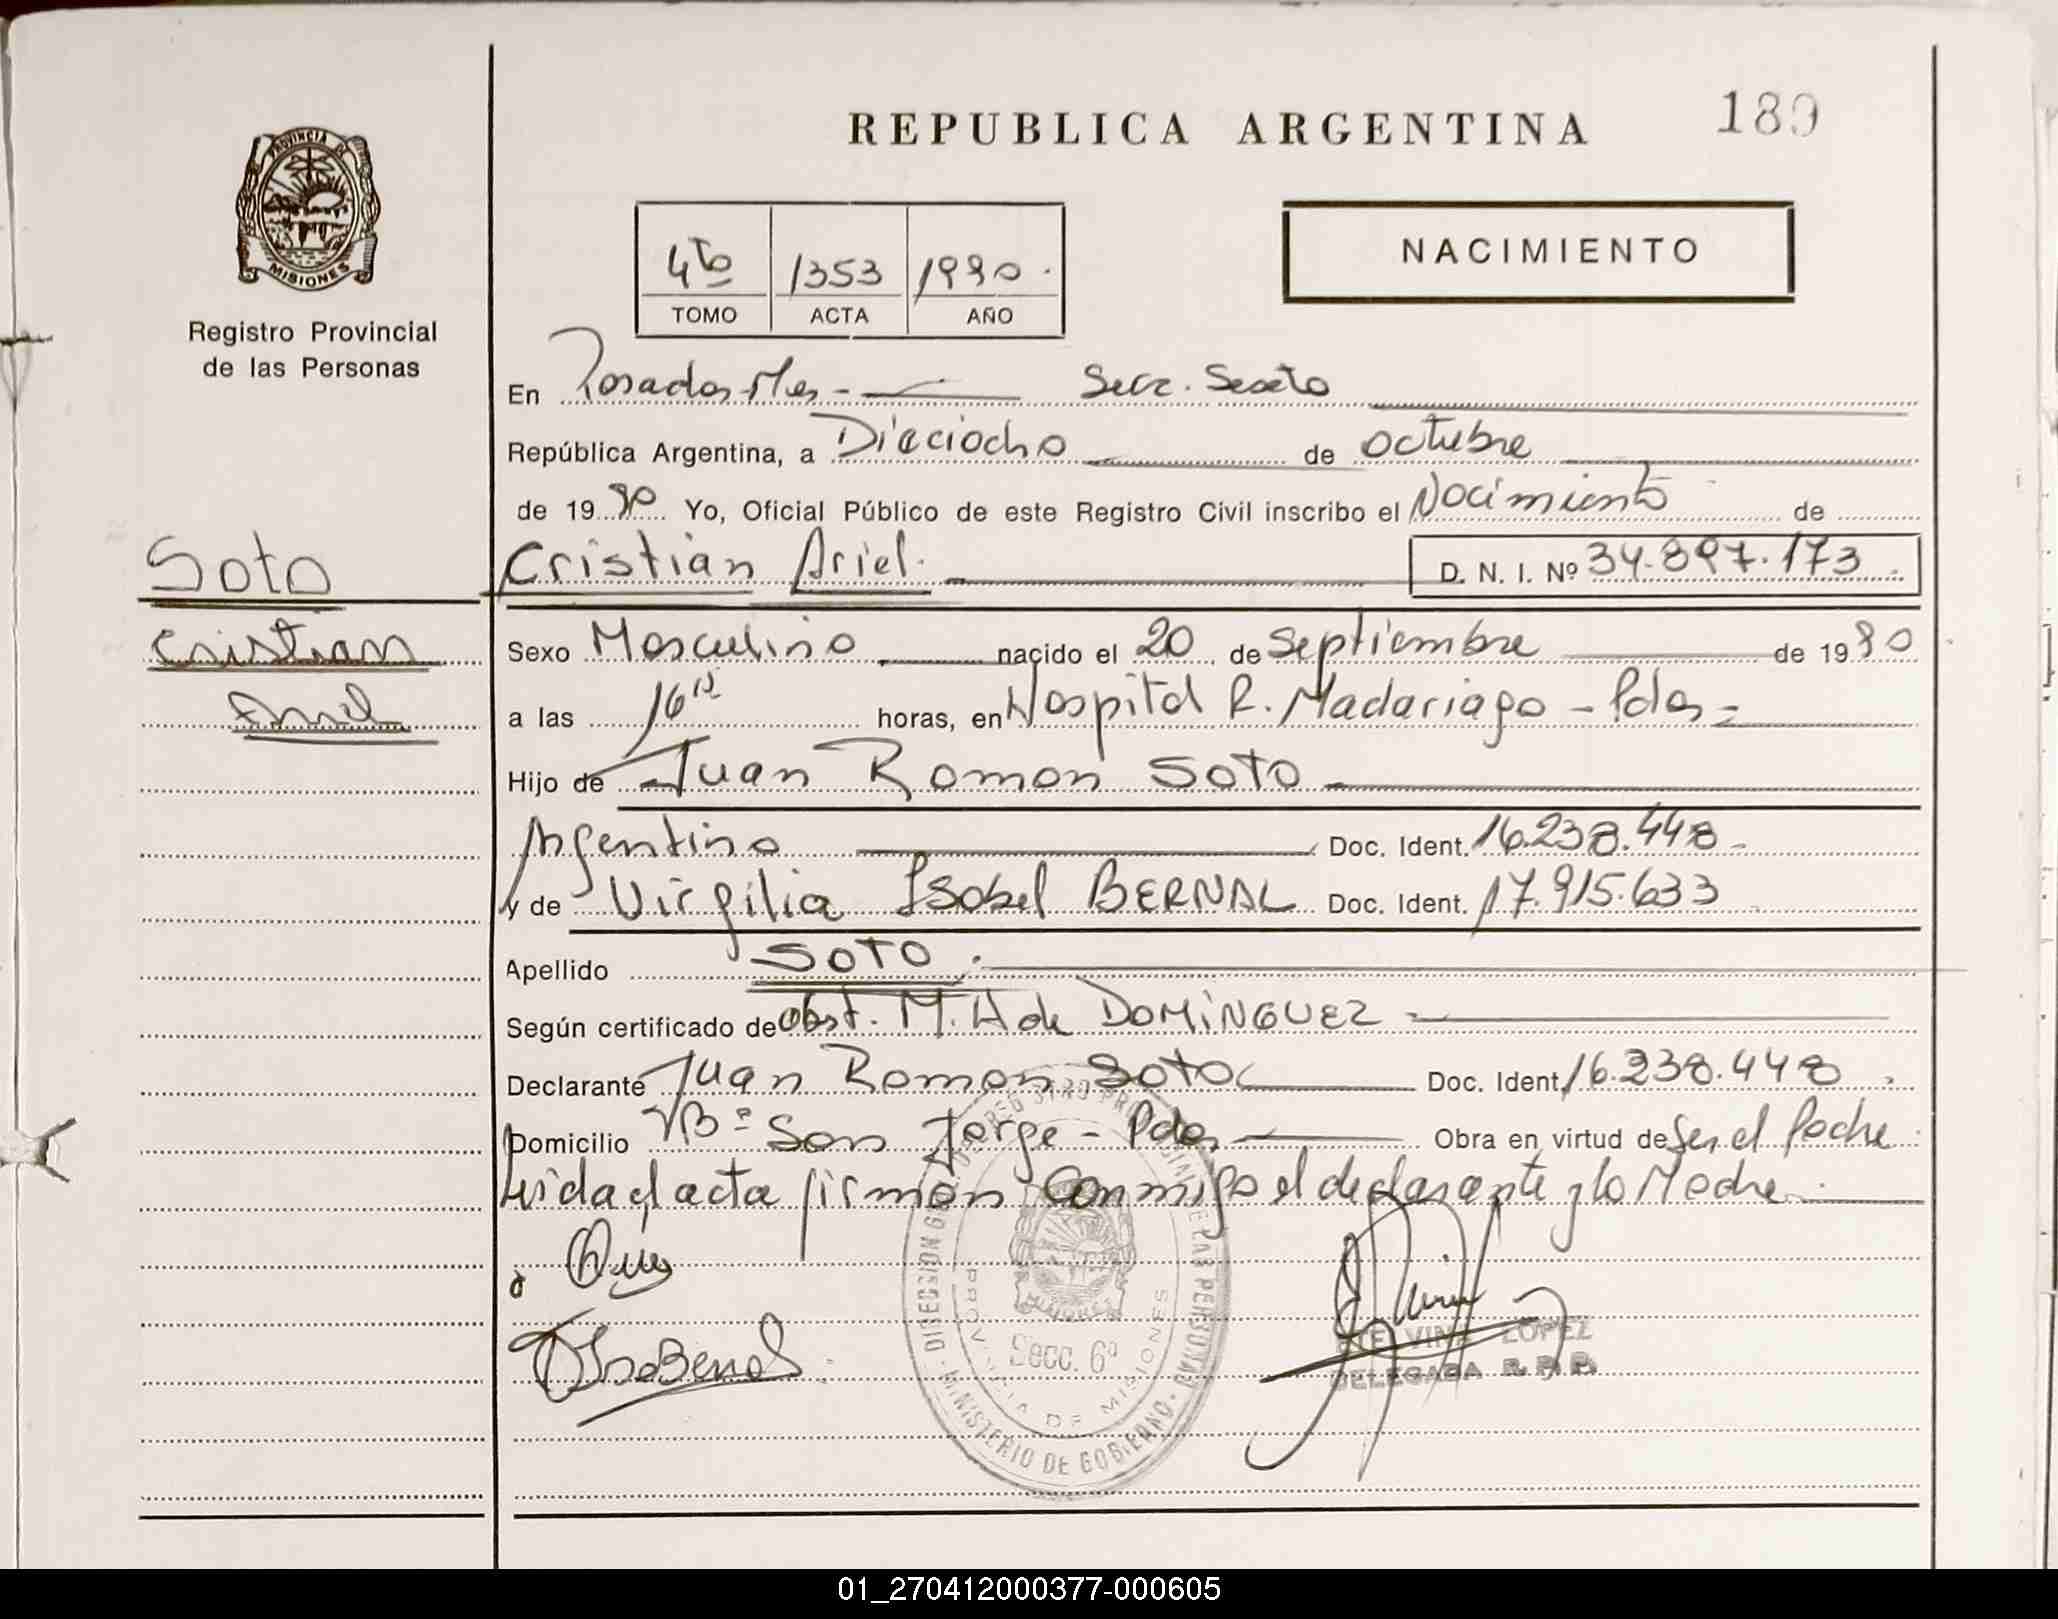 REPUBLICA ARGENTINA
189
PROVINCIA DE
MISIONES
Registro Provincial
de las Personas
4to 1353 1990.
TOMO ACTA AÑO
NACIMIENTO
En Posadas Mnes - Secc. Sexta
República Argentina, a Dieciocho de octubre
de 1990 Yo, Oficial Público de este Registro Civil inscribo el Nacimiento de
Soto
Cristian Ariel. D. N. I. Nº 34.897.173
Cristian
Sexo Masculino nacido el 20 de Septiembre de 1990
Ariel
a las 16 horas, en Hospital R. Madariaga - Pdas -
Hijo de Juan Ramon SOTO
Argentino Doc. Ident. 16.238.448 -
y de Virgilia Isabel BERNAL Doc. Ident. 17.915.633
Apellido SOTO.
Según certificado de obst. M. H de DOMiNGUEZ -
Declarante Juan Ramon Soto Doc. Ident. 16.238.448.
Domicilio Bº San Jorge - Pdas Obra en virtud de Ser el Padre
Leida el acta firman conmigo el declarante y la Madre.
PROVINCIA DE MISIONES
MINISTERIO DE GOBIERNO
Secc. 6ª
LOPEZ
DELEGADA R.P.P.
01_270412000377-000605